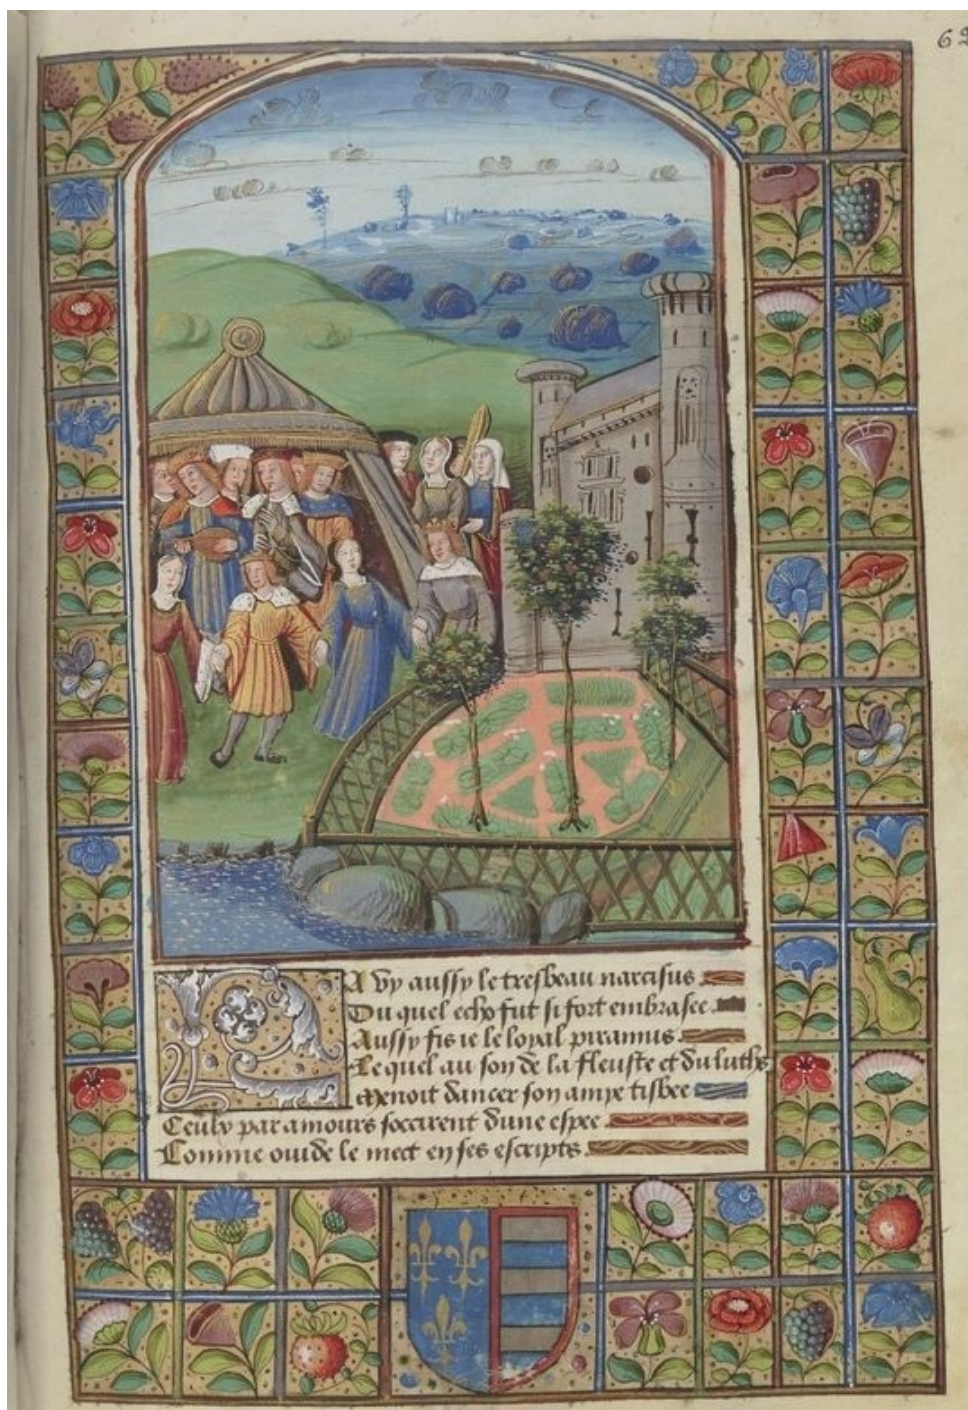 62
La vy aussy le tresbeau narcisus
Du quel echo fut si fort embrasee
Aussy fis ie le loyal piramus
Lequel au son de la fleuste et du luths
Menoit dancer son amye tisbee
Ceulx par amours soccirent dune espee
Comme ouide le mect en ses escripts